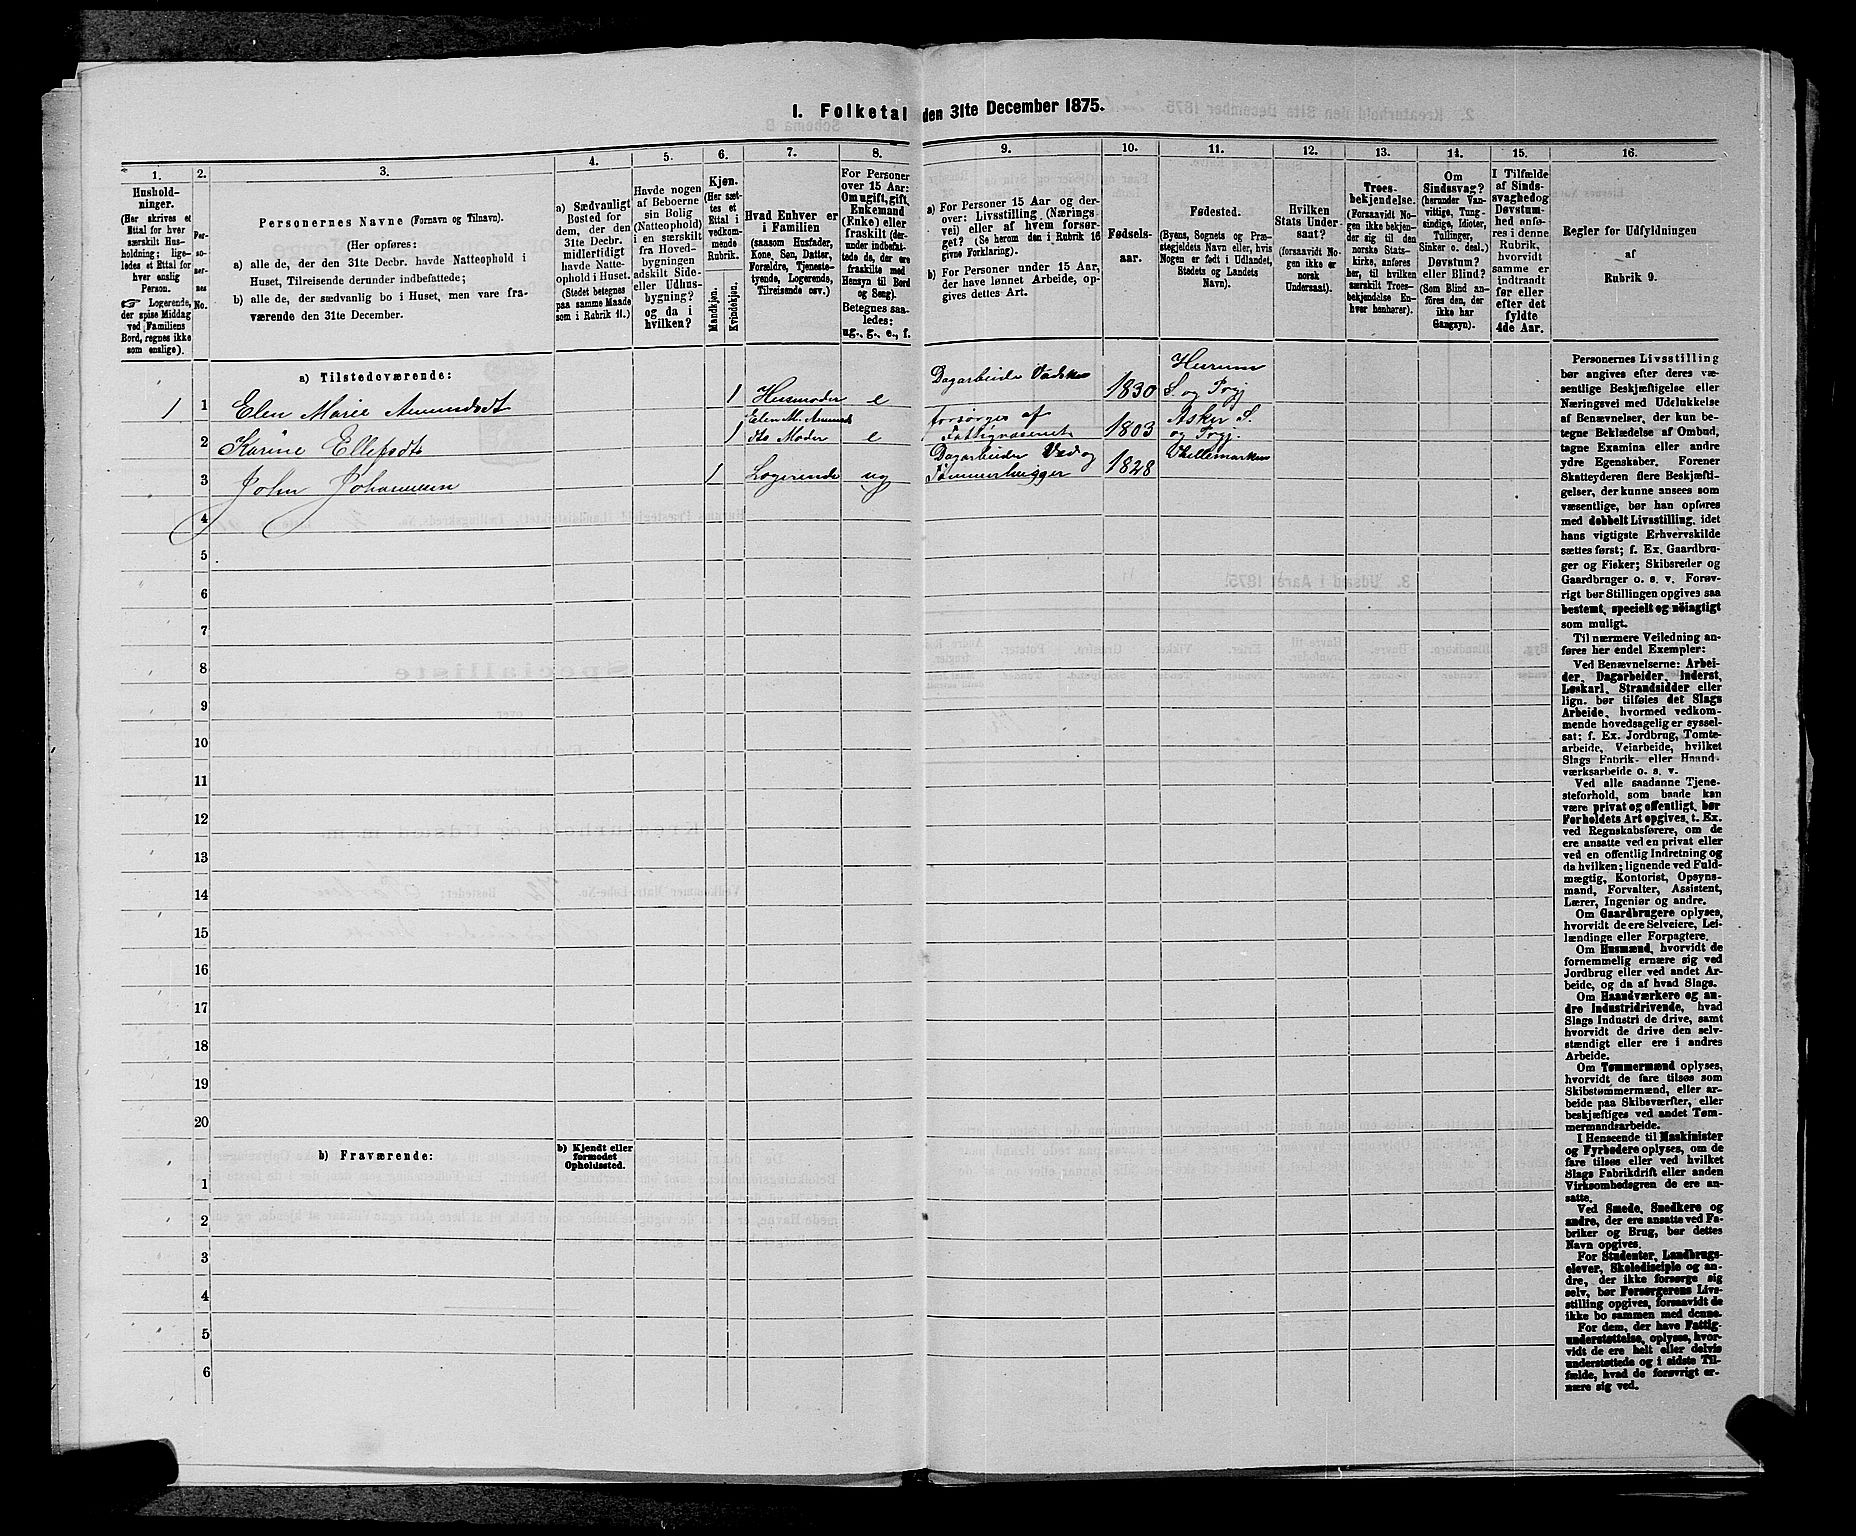 1. Folketal den 31te December 1875.
1.
2.
3.
4.
5.
6.
7.
8.
9.
10.
11.
12.
13.
14.
15.
16.
Hushold-
ninger.
(Her skrives et
Ettal for hver
særskilt Hus-
holdning; lige-
ledes et Ettal for
hver enslig
Person.
☞ Logerende,
der spise Middag
ved Familiens
Bord, regnes ikke
som enslige).
Per-
so-
ner-
nes
No.
Personernes Navne (Fornavn og Tilnavn).
(Her opføres:
a) alle de, der den 31te Decbr. havde Natteophold i
Huset, Tilreisende derunder indbefattede;
b) alle de, der sædvanlig bo i Huset, men vare fra-
værende den 31te December.
a) Sædvanligt
Bosted for
dem, der den
31te Decbr.
midlertidigt
havde Natte-
ophold i Huset.
(Stedet betegnes
paa samme Maade
som i Rubrik 11.)
Havde nogen
af Beboerne
sin Bolig
(Natteophold)
i en særskilt
fra Hoved-
bygningen
adskilt Side-
eller Udhus-
bygning?
og da i
hvilken?
Kjøn.
(Her sæt-
tes et
Ettal i
vedkom-
mende
Rubrik.
Mandkjøn.
Kvindekjøn.
Hvad Enhver er
i Familien
(saasom Husfader,
Kone, Søn, Datter,
Forældre, Tjeneste-
tyende, Logerende,
Tilreisende osv.)
For Personer
over 15 Aar:
Om ugift, gift,
Enkemand
(Enke) eller
fraskilt (der-
under indbefat-
tede da, der ere
fraskilte med
Hensyn til Bord
og Seng).
Betegnes saa-
ledes:
ug., g., e., f.
a) For Personer 15 Aar og der-
over: Livsstilling (Nærings-
vei) eller af hvem forsør-
get? (Se herom den i Rubrik 16
givne Forklaring).
b) For Personer under 15 Aar,
der have lønnet Arbeide, op-
gives dettes Art.
Fødsels-
aar.
Fødested.
(Byens, Sognets og Præ-
stegjeldets Navn eller, hvis
Nogen er født i Udlandet,
Stedets og Landets
Navn).
Hvilken
Stats Under-
saat?
(forsaavidt No-
gen ikke er
norsk
Undersaat).
Troes-
bekjendelse.
(Forsaavidt No-
gen ikke bekjen-
der sig til den
norske Stats-
kirke, anføres
her, til hvilken
særskilt Troes-
bekjendelse En-
hver henhører).
Om
Sindssvag?
(herunder Van-
vittige, Tung-
sindige, Idioter,
Tullinger,
Sinker o. desl.)
Døvstum?
eller Blind?
(Som Blind an-
føres den, der
ikke har
Gangsyn).
I Tilfælde
af Sinds-
svaghed og
Døvstum-
hed anfø-
res i denne
Rubrik,
hvorvidt
samme er
indtraadt
før eller
efter det
fyldte
4de Aar.
Regler for Udfyldningen
af
Rubrik 9.
a) Tilstedeværende:
1 1 Elen Marie Amundsdt 1 Husmoder e Dagarbeide Vadsker 1830 Hurum S. og Prgj
2 Karine Ellefsdt 1 Elen M. Amunds dts Moder e forsørges af Fattigvæsenet 1803 Asker S. og Prgj.
3 John Johannesen 1 Logerende ug Dagarbeider Ved og Tømmerhugger 1828
4
5
6
7
8
9
10
11
12
13
14
15
16
17
18
19
20
b) Fraværende:
b) Kjendt eller
formodet
Opholdssted.
1
2
3
4
5
6
Personernes Livsstilling
bør angives efter deres væ-
sentlige Beskjæftigelse eller
Næringsvei med Udelukkelse
af Benævnelser, der kun be-
tegne Beklædelse af Ombud,
tagne Examina eller andre
ydre Egenskaber. Forener
Skatteyderen flere Beskjæfti-
gelser, der kunne ansees som
væsentlige, bør han opføres
med dobbelt Livsstilling, idet
hans vigtigste Erhvervskilde
sættes først; f. Ex. Gaardbru-
ger og Fisker; Skibsreder og
Gaardbruger o. s. v. Forøv-
rigt bør Stillingen opgives saa
bestemt, specielt og nöiagtigt
som muligt.
Til nærmere Veiledning an-
føres her endel Exempler:
Ved Benævnelserne: Arbei-
der, Dagarbeider, Inderst,
Løskarl, Strandsidder eller
lign. bør tilføies det Slags
Arbeide, hvormed vedkom-
mende hovedsagelig er syssel-
sat; f. Ex. Jordbrug, Tomte-
arbeide, Veiarbeide, hvilket
Slags Fabrik- eller Haand-
værksarbeide o. s. v.
Ved alle saadanne Tjene-
steforhold, som baade kan
være privat og offentligt, bør
Forholdets Art opgives, t. Ex.
ved Regnskabsførere, om de
ere ansatte ved en privat eller
ved en offentlig Indretning og
da hvilken; lignende ved Fuld-
mægtig, Kontorist, Opsyns-
mand, Forvalter, Assistent,
Lærer, Ingeniør og andre.
Om Gaardbrugere oplyses,
hvorvidt de ere Selveiere, Lei-
lændinge eller Forpagtere.
Om Husmænd, hvorvidt de
fornemmelig ernære sig ved
Jordbrug eller ved andet Ar-
beide, og da af hvad Slags.
Om Haandværkere og an-
dre Industridrivende, hvad
Slags Industri de drive, samt
hvorvidt de drive den selv-
stændigt eller ere i andres
Arbeide.
Om Tømmermænd oplyses,
hvorvidt de fare tilsøs som
Skibstømmermænd, eller ar-
beide paa Skibsværfter, eller
beskjæftiges ved andet Tøm-
mermandsarbeide.
I Henseende til Maskinister
og Fyrbødere oplyses, om de
fare tilsøs eller ved hvilket
Slags Fabrikdrift eller anden
Virksomhedsgren de ere an-
satte.
Ved Smede, Snedkere og
andre, der ere ansatte ved Fa-
briker og Brug, bør dettes
Navn opgives.
For Studenter, Landbrugs-
elever, Skoledisciple og an-
dre, der ikke forsørge sig
selv, bør Forsørgerens Livs-
stilling opgives, forsaavidt de
ikke bo sammen med denne.
For dem, der have Fattig-
understøttelse, oplyses, hvor-
vidt de ere helt eller delvis
understøttede og i sidste Til-
fælde, hvad de forøvrigt er-
nære sig ved.